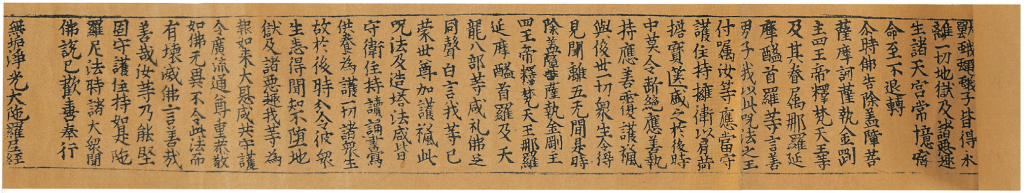 蛾蟻子皆得永
離一切地獄及諸惡趣
生諸天宮常憶宿
命至不退轉
尒時佛告除盖障菩
薩摩訶薩執金剛
主四王帝釋梵天王等
及其眷属那羅延
摩醯首羅等言善
男子我以此呪法之王
付嘱汝等應當守
護住持擁衛以肩荷
擔寶篋盛之於後時
中莫令斷絕應善執
持應善覆護授
與後世一切衆生令得
見聞離五无間是時
除盖障菩薩執金剛主
四王帝釋梵天王那羅
延摩醯首羅及天
龍八部等咸礼佛足
同聲白言我等已
蒙世尊加護授此
呪法及造塔法咸皆
守衛住持讀誦書寫
供養為護一切諸衆生
故於後時分令彼衆
生悉得聞知不堕地
獄及諸惡趣我等為
報如来大恩咸共守護
令廣流通尊重恭敬
如佛无異不令此法而
有壞滅佛言善哉
善哉汝等乃能堅
固守護住持如是陁
羅尼法時諸大衆聞
佛說已歡喜奉行
無垢淨光大陁羅尼經